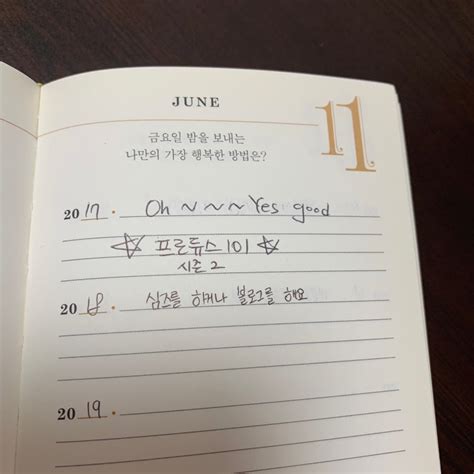 JUNE
11
금요일 밤을 보내는
나만의 가장 행복한 방법은?
2017. Oh ~ ~ ~ Yes good
☆ 프로듀스 101 ☆
시즌 2
2018. 심즈를 하거나 블로그를 해요
2019.